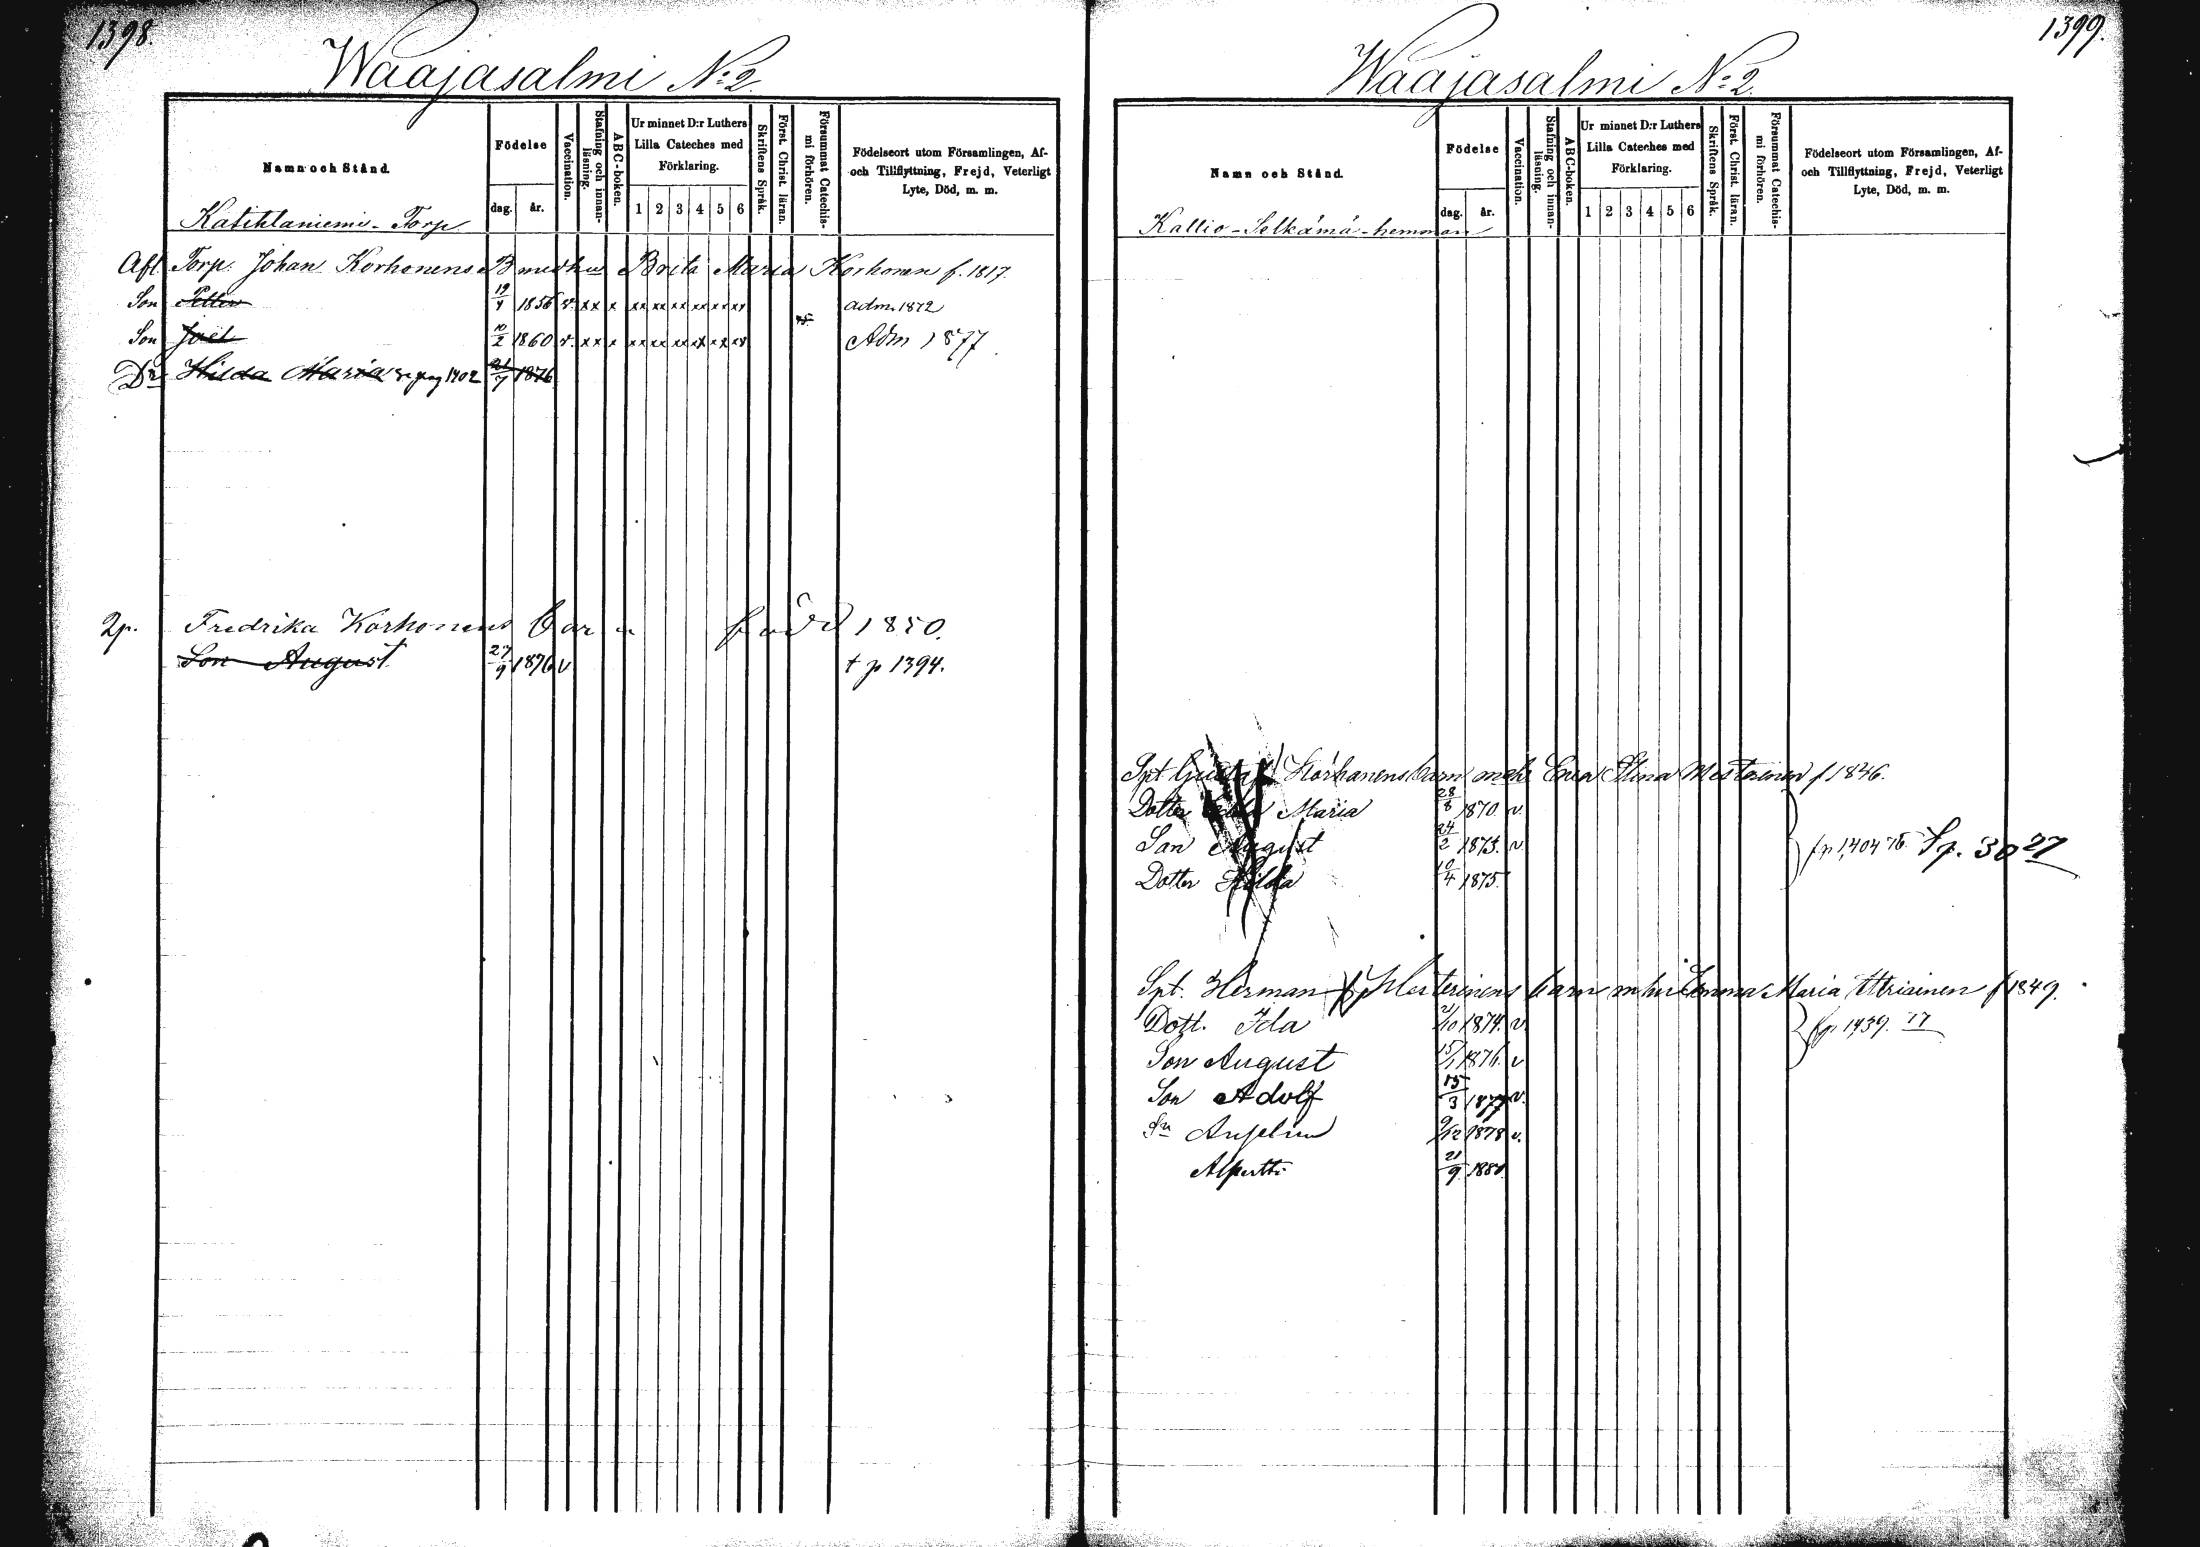 1398.
Waajasalmi No 2.
Namn och Stånd.
Födelse
dag.
år.
Vaccination.
Stafning och innan-
läsning.
ABC-boken.
Ur minnet D:r Luthers
Lilla Cateches med
Förklaring.
1 2 3 4 5 6
Skriftens Språk.
Först. Christ. läran.
Försummat Catechis-
mi förhören.
Födelseort utom Församlingen, Af-
och Tillflyttning, Frejd, Veterligt
Lyte, Död, m. m.
Katihlaniemi - Torp
Afl. Torp. Johan Korhonens B med hu Brita Maria Korhonen f. 1817.
Son Petter 19/4 1856 v. xx x xx xx xx xx xx xx adm. 1872
Son Joel 10/2 1860 v. xx x xx xx xx xx xx xx Adm 1877
Dr Hilda Maria se pag 1402 21/7 1876
2p. Fredrika Korhonens barn född 1850.
Son August 27/9 1876 v † p 1394.
1399.
Waajasalmi No 2.
Namn och Stånd.
Födelse
dag.
år.
Vaccination.
Stafning och innan-
läsning.
ABC-boken.
Ur minnet D:r Luthers
Lilla Cateches med
Förklaring.
1 2 3 4 5 6
Skriftens Språk.
Först. Christ. läran.
Försummat Catechis-
mi förhören.
Födelseort utom Församlingen, Af-
och Tillflyttning, Frejd, Veterligt
Lyte, Död, m. m.
Kallio - Selkämä - hemman
Spt Gustaf Korhonens barn m hu Eva Stina Mestarinen f 1846.
Dotter Maria 28/8 1870. v.
Son August 24/2 1873. v. fp 1404 76. Sp. 3027
Dotter Hilda 10/4 1875.
Spt. Herman Mesterinens barn m hu Emma Maria Utriainen f 1849.
Dott. Ida 2/10 1874. v. fp 1439. 77
Son August 15/1 1876. v
Son Adolf 15/3 1877 v.
Sn Anselm 9/12 1878 v.
Alpertti 21/9 1880